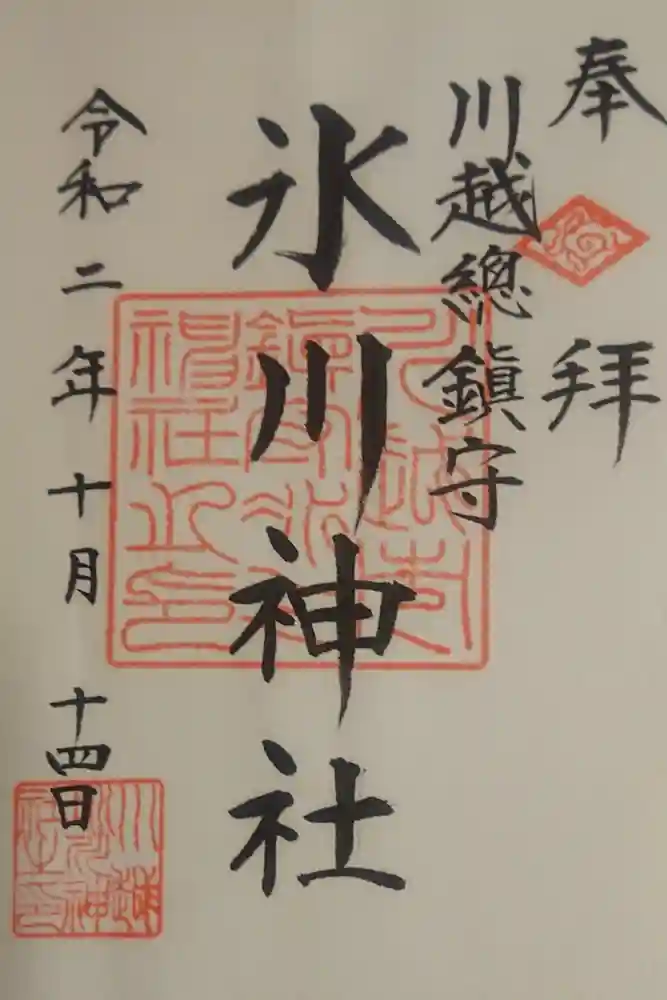 奉拝
川越總鎮守
氷川神社
令和二年十月十四日